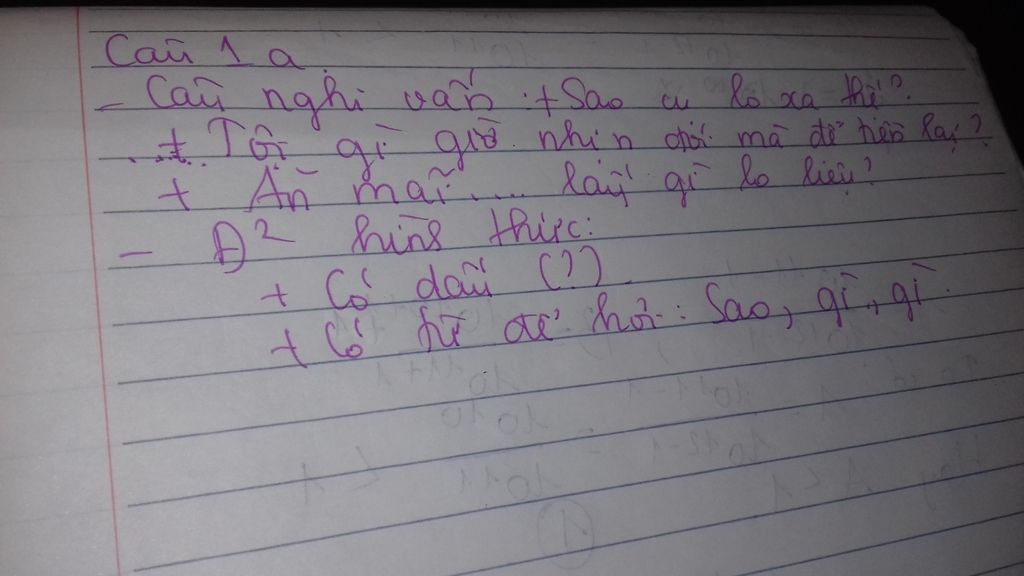 Câu 1 a
- Câu nghi vấn : + Sao cụ lo xa thế?
+ Tội gì giờ nhịn đói mà để tiền lại?
+ Ăn mãi .... lấy gì lo liệu?
- Đ² hình thức:
+ Có dấu (?)
+ Có từ để hỏi : Sao, gì, gì.
1